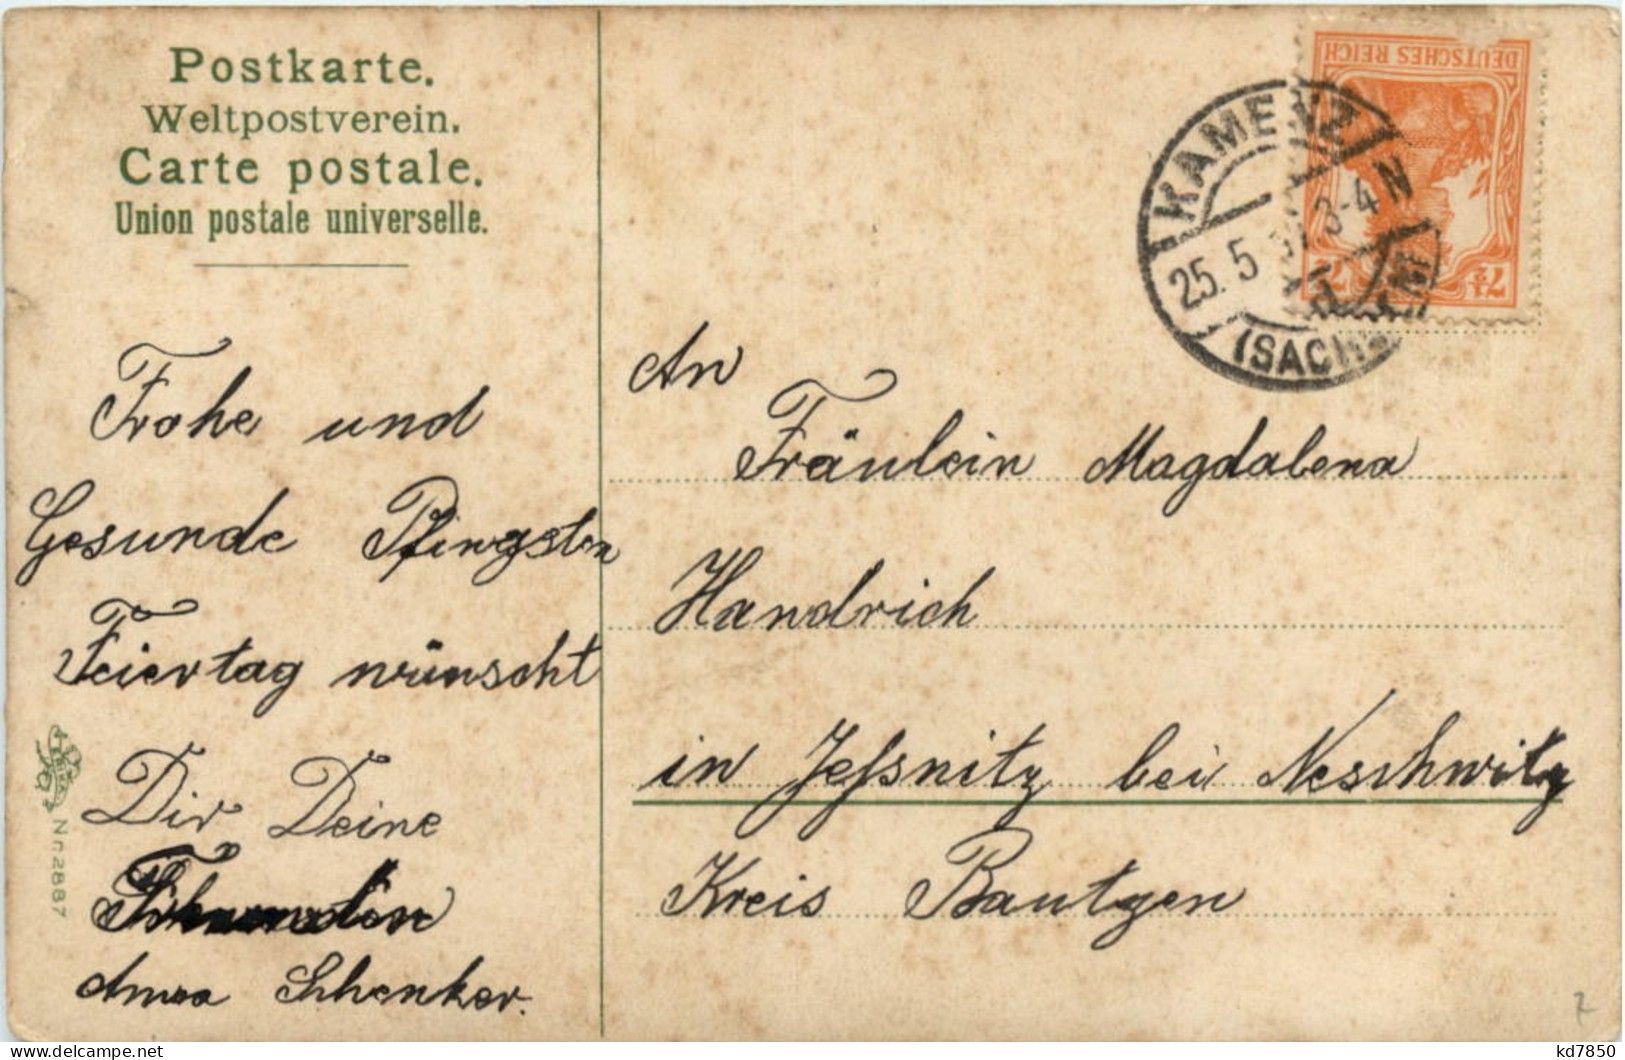 Postkarte.
Weltpostverein.
Carte postale.
Union postale universelle.
DEUTSCHES REICH
7½ 7½
KAMENZ
25. 5 3-4 N
(SACHSEN)
Frohe und
Gesunde Pfingsten
Feiertag wünscht
Dir Deine
Freundin
Anna Schenker.
An
Fräulein Magdalena
Handrich
in Jeßnitz bei Neschwitz
Kreis Bautzen
Nn2887
kd7850